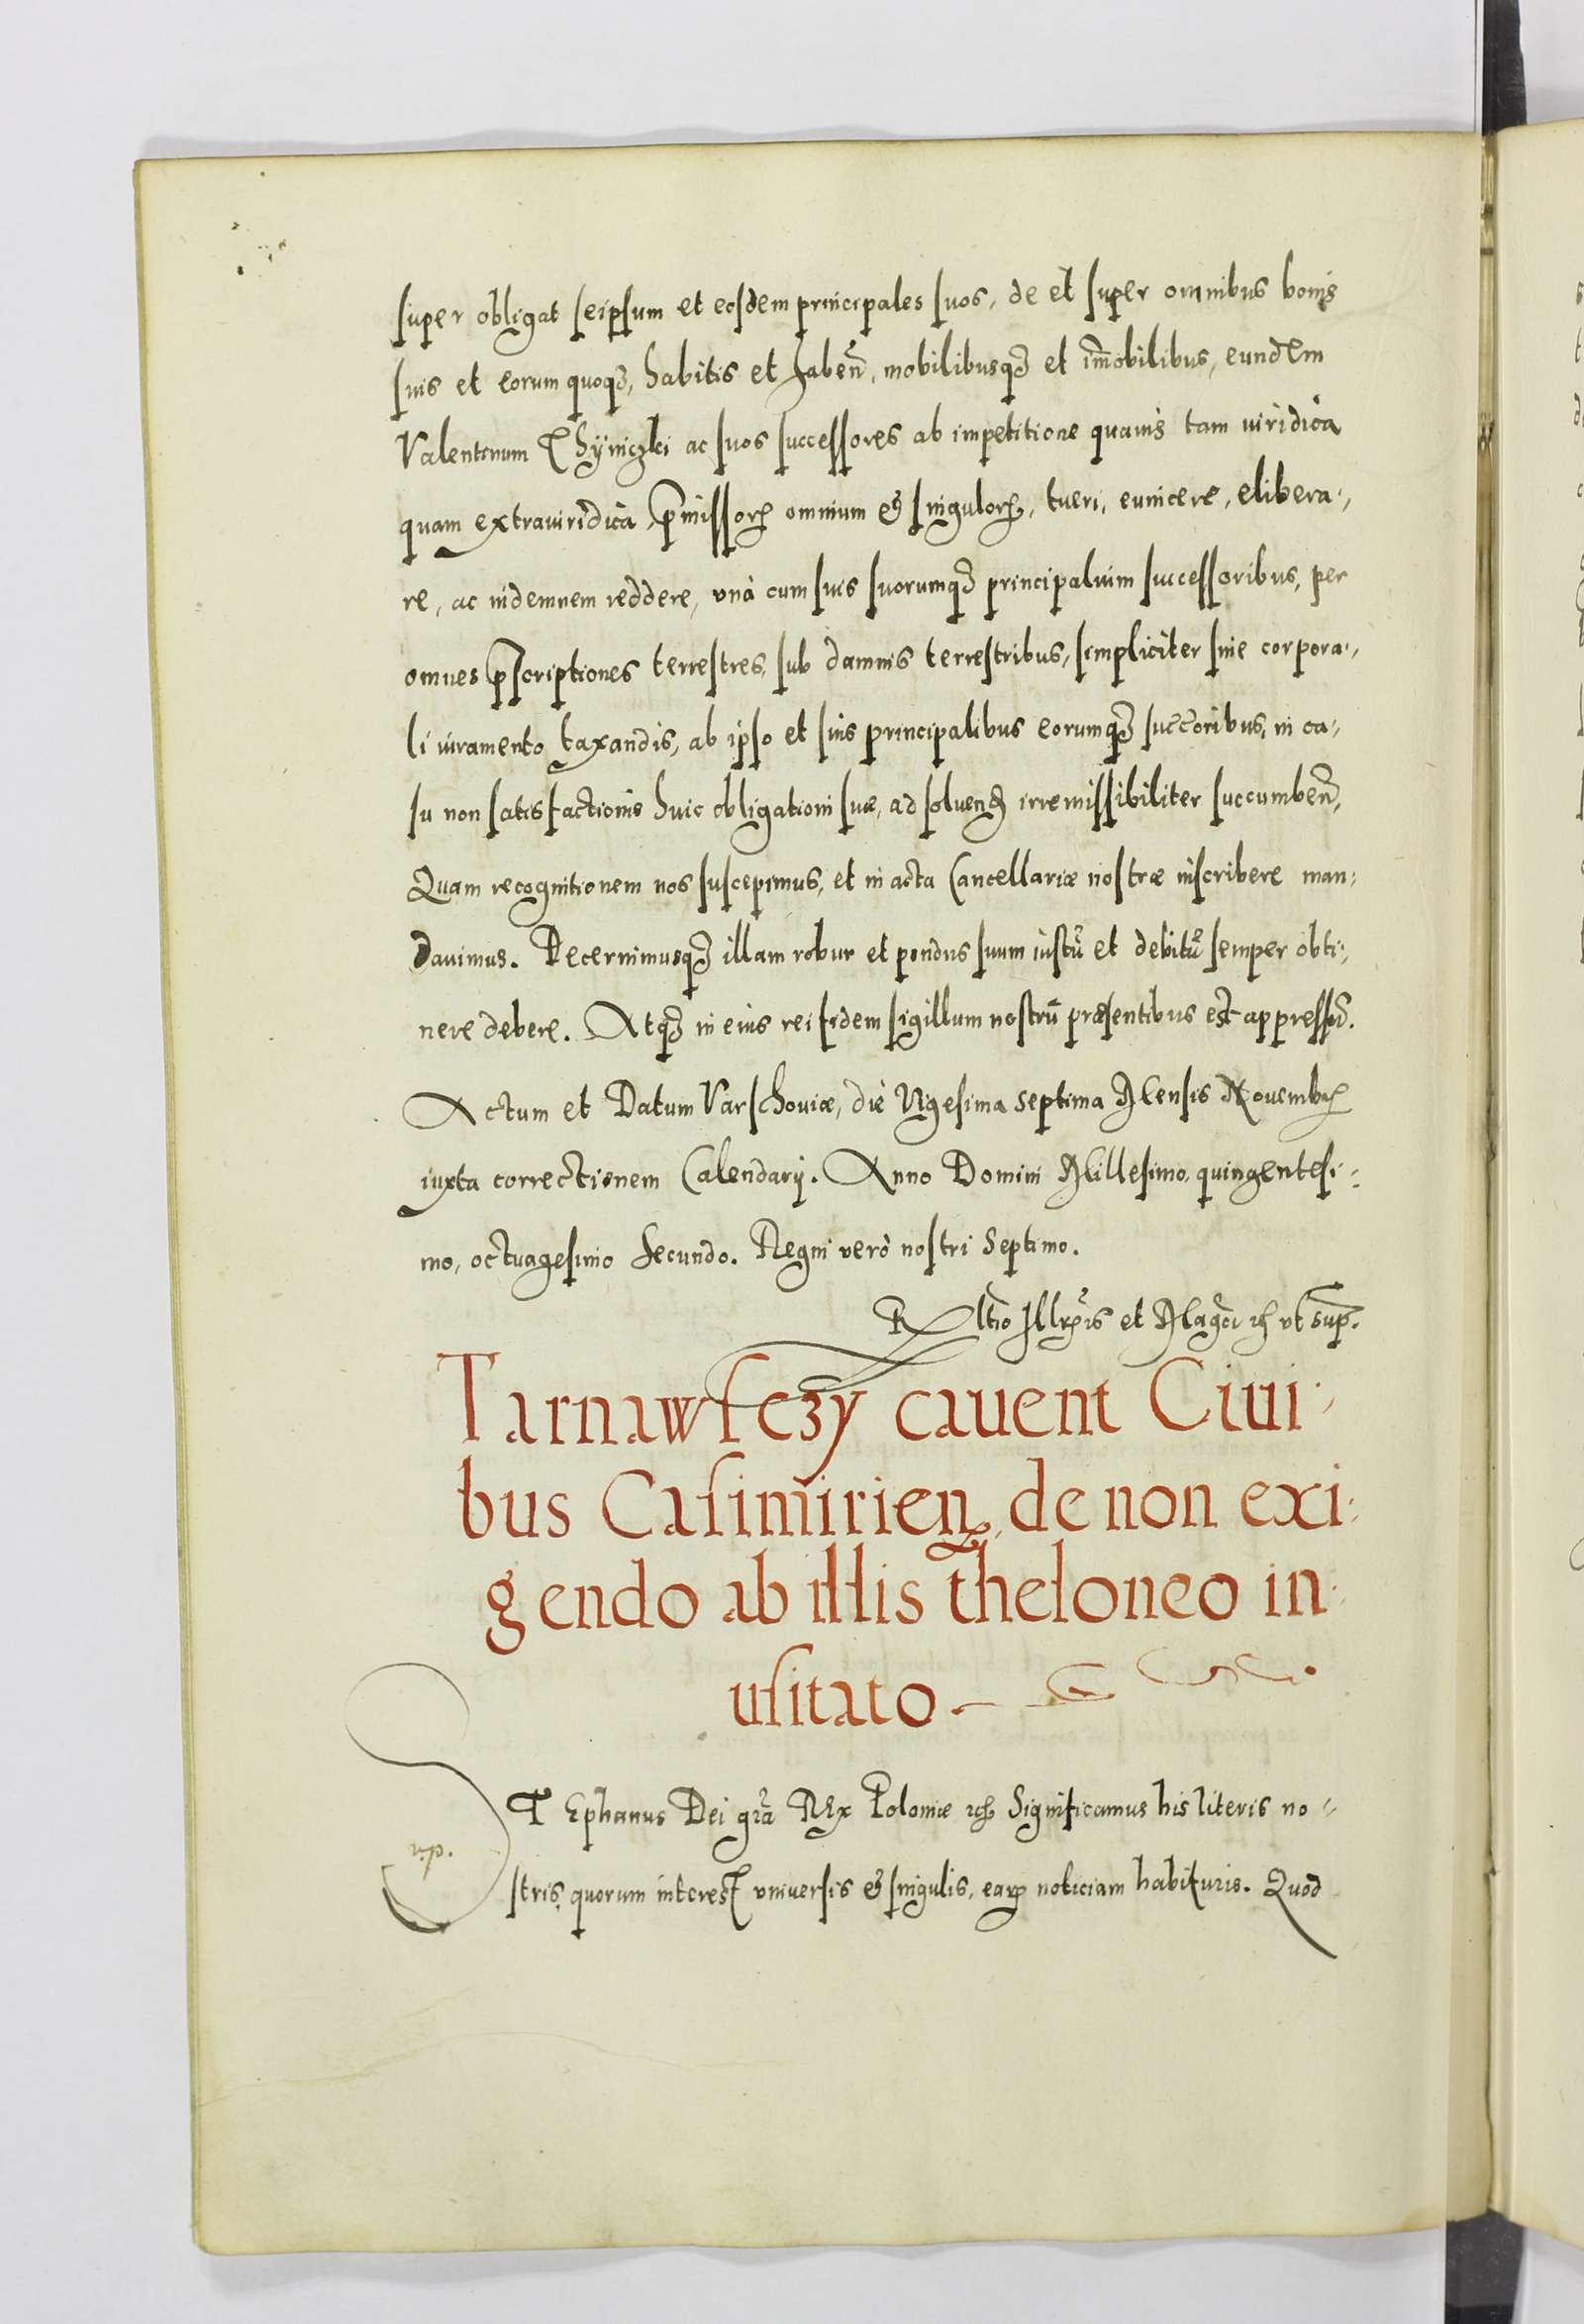 super obligat seipsum et eosdem principales suos, de et super omnibus bonis
suis et eorum quoqȝ, habitis et haben̄, mobilibusqȝ et im̄obilibus, eundem
Valentinum Chyniczki ac suos successores ab impetitione quauis tam iuridica
quam extraiuridica, p̄missorꝝ omnium & singulorꝝ, tueri, euincere, elibera-
re, ac indemnem reddere, vnà cum suis suorumqȝ principalium successoribus, per
omnes p̄scriptiones terrestres, sub damnis terrestribus, simpliciter sine corpora-
li iuramento taxandis, ab ipso et suis principalibus eorumqȝ succ̄oribus, in ca-
su non satisfactionis huic obligationi suæ, ad soluend irremissibiliter succumben̄,
Quam recognitionem nos suscepimus, et in acta Cancellariæ nostræ inscribere man-
dauimus. Decernimusqȝ illam robur et pondus suum iustū et debitū semper obti-
nere debere. Atqȝ in eius rei fidem sigillum nostrū præsentibus est appressū.
Actum et Datum Varschouiæ, die Vigesima septima Mensis Nouembrꝭ
iuxta correctionem Calendarij. Anno Domini Millesimo, quingentesi-
mo, octuagesimo Secundo. Regni verò nostri Septimo.
Rltio Illrꝭis et Mag̃ci ꝛc̃ vt sup̄.
Tarnawsczy cauent Ciui-
bus Casimirienꝭ, de non exi-
gendo ab illis theloneo in-
usitato
STEphanus Dei gr̃a REx Poloniæ ꝛc̃ Significamus his literis no-
v.p.
stris, quorum interest vniuersis & singulis, earꝝ noticiam habituris. Quod